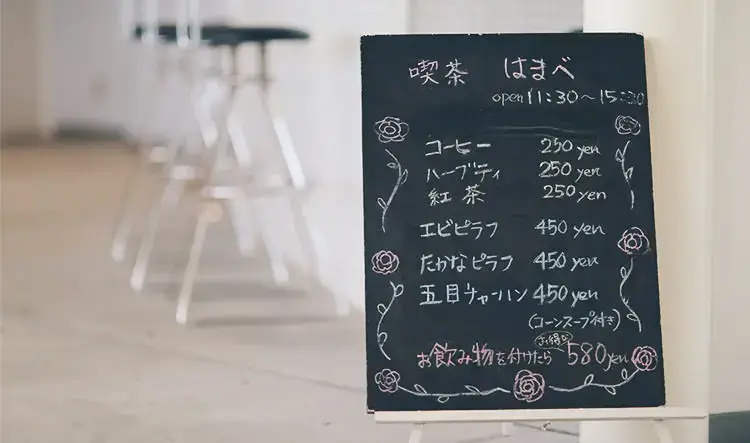 喫茶 はまべ
open 11:30〜15:30
コーヒー 250 yen
ハーブティ 250 yen
紅茶 250 yen
エビピラフ 450 yen
たかなピラフ 450 yen
五目チャーハン 450 yen
(コーンスープ付き)
お得な
お飲み物を付けたら 580 yen